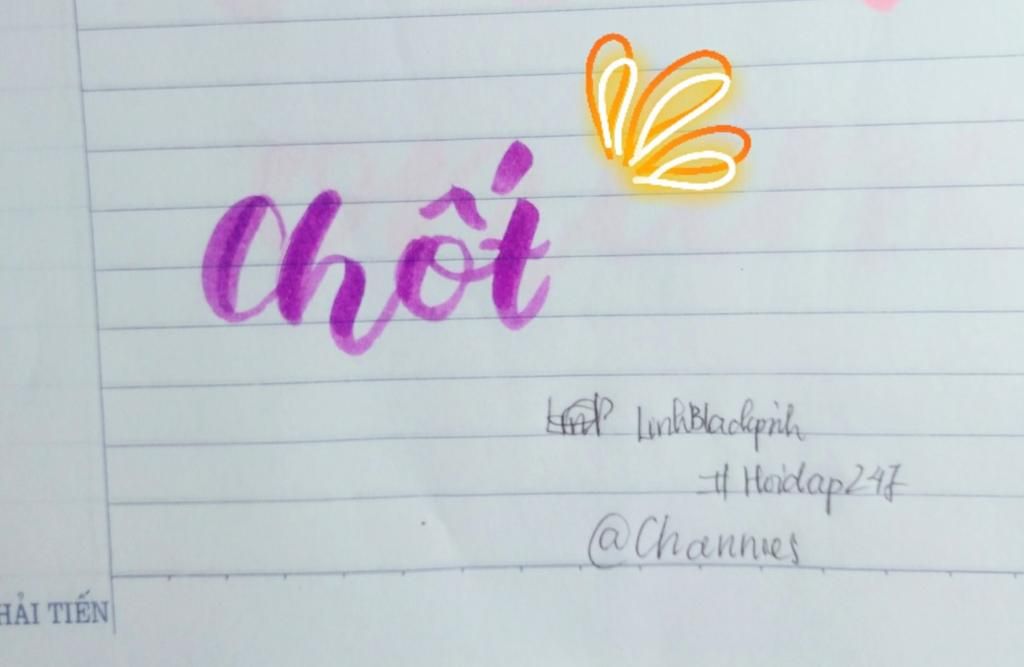 Chốt
LinhBlackpink
#Hoidap247
@Channies
HẢI TIẾN